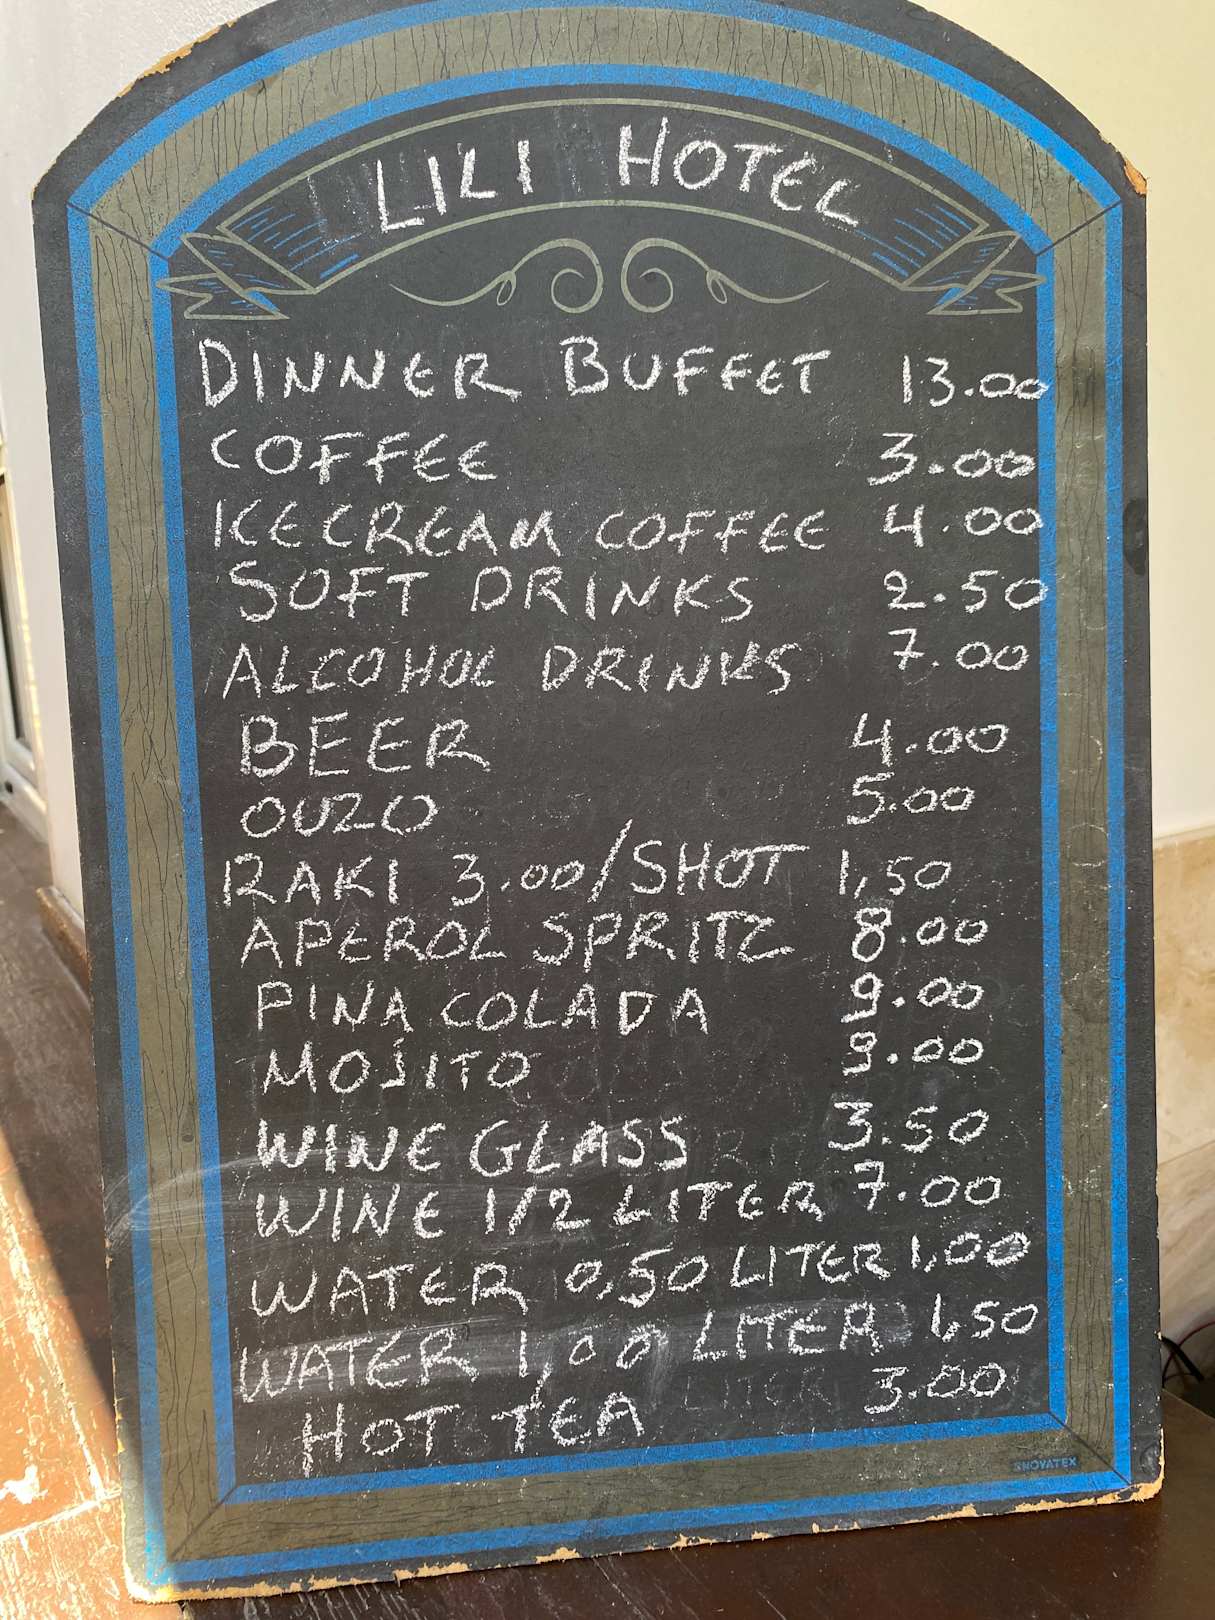 LILI HOTEL
DINNER BUFFET 13.00
COFFEE 3.00
ICECREAM COFFEE 4.00
SOFT DRINKS 2.50
ALCOHOL DRINKS 7.00
BEER 4.00
OUZO 5.00
RAKI 3.00/SHOT 1,50
APEROL SPRITZ 8.00
PINA COLADA 9.00
MOJITO 9.00
WINE GLASS 3.50
WINE 1/2 LITER 7.00
WATER 0,50 LITER 1,00
WATER 1,00 LITER 1,50
HOT TEA 3.00
NOVATEX